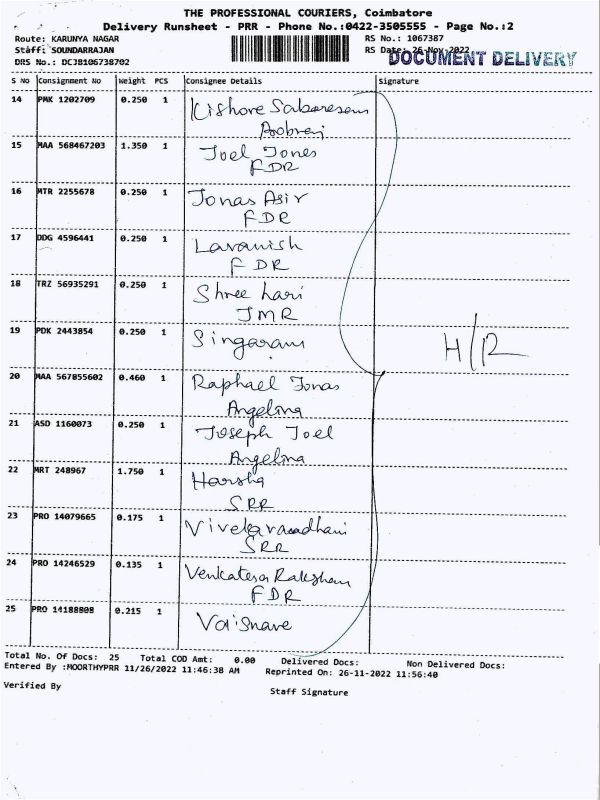 THE PROFESSIONAL COURIERS, Coimbatore
Delivery Runsheet - PRR - Phone No.:0422-3505555 - Page No.:2
Route: KARUNYA NAGAR RS No.: 1067387
Staff: SOUNDARRAJAN RS Date: 26-Nov-2022
DOCUMENT DELIVERY
DRS No.: DCJB106738702
S NO Consignment No Weight PCS Consignee Details Signature
14 PMK 1202709 0.250 1 Kishore
15 MAA 568467203 1.350 1 Joel Jones
FDR
16 MTR 2255678 0.250 1 Jonas Asir
FDR
17 DDG 4596441 0.250 1 Lavanish
FDR
18 TRZ 56935291 0.250 1 Shree hari
JMR
19 PDK 2443854 0.250 1 Singaram
H/R
20 MAA 567855602 0.460 1 Raphael Jonas
Angelina
21 ASD 1160073 0.250 1 Joseph Joel
Angelina
22 MRT 248967 1.750 1 Harsha
SRR
23 PRO 14079665 0.175 1
SRR
24 PRO 14246529 0.135 1
FDR
25 PRO 14188808 0.215 1 Vaisnave
Total No. Of Docs: 25 Total COD Amt: 0.00 Delivered Docs: Non Delivered Docs:
Entered By :MOORTHYPRR 11/26/2022 11:46:38 AM Reprinted On: 26-11-2022 11:56:40
Verified By Staff Signature